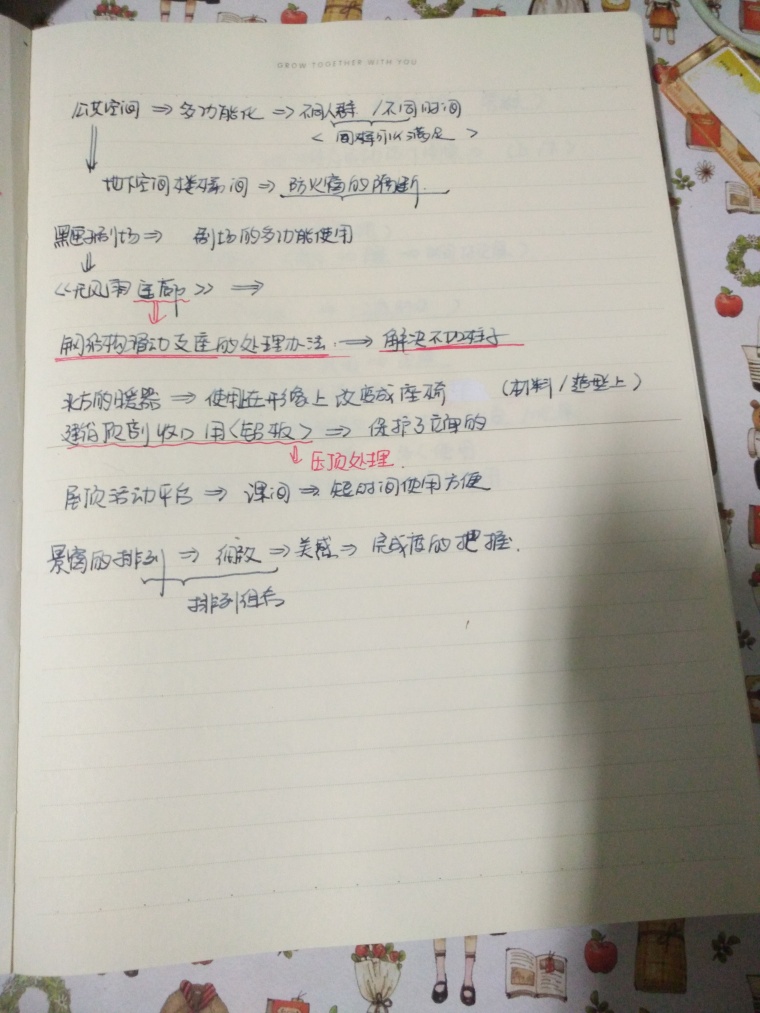 GROW TOGETHER WITH YOU
公共空间 ⇒ 多功能化 ⇒ 不同人群 / 不同时间
< 同样可以满足 >
地下空间楼梯间 ⇒ 防火窗的隔断.
黑匣子剧场 ⇒ 剧场的多功能使用
《无风雨连廊》 ⇒
钢结构滑动支座的处理办法 ⇒ 解决不加柱子
北方的暖器 ⇒ 使用在形象上改变成座椅 (材料 / 造型上)
建筑顶剖收口用〈铝板〉 ⇒ 保护了立面的
压顶处理.
屋顶活动平台 ⇒ 课间 ⇒ 短时间使用方便
景窗的排列 ⇒ ⇒ 美感 ⇒ 完成度的把握.
排列组合